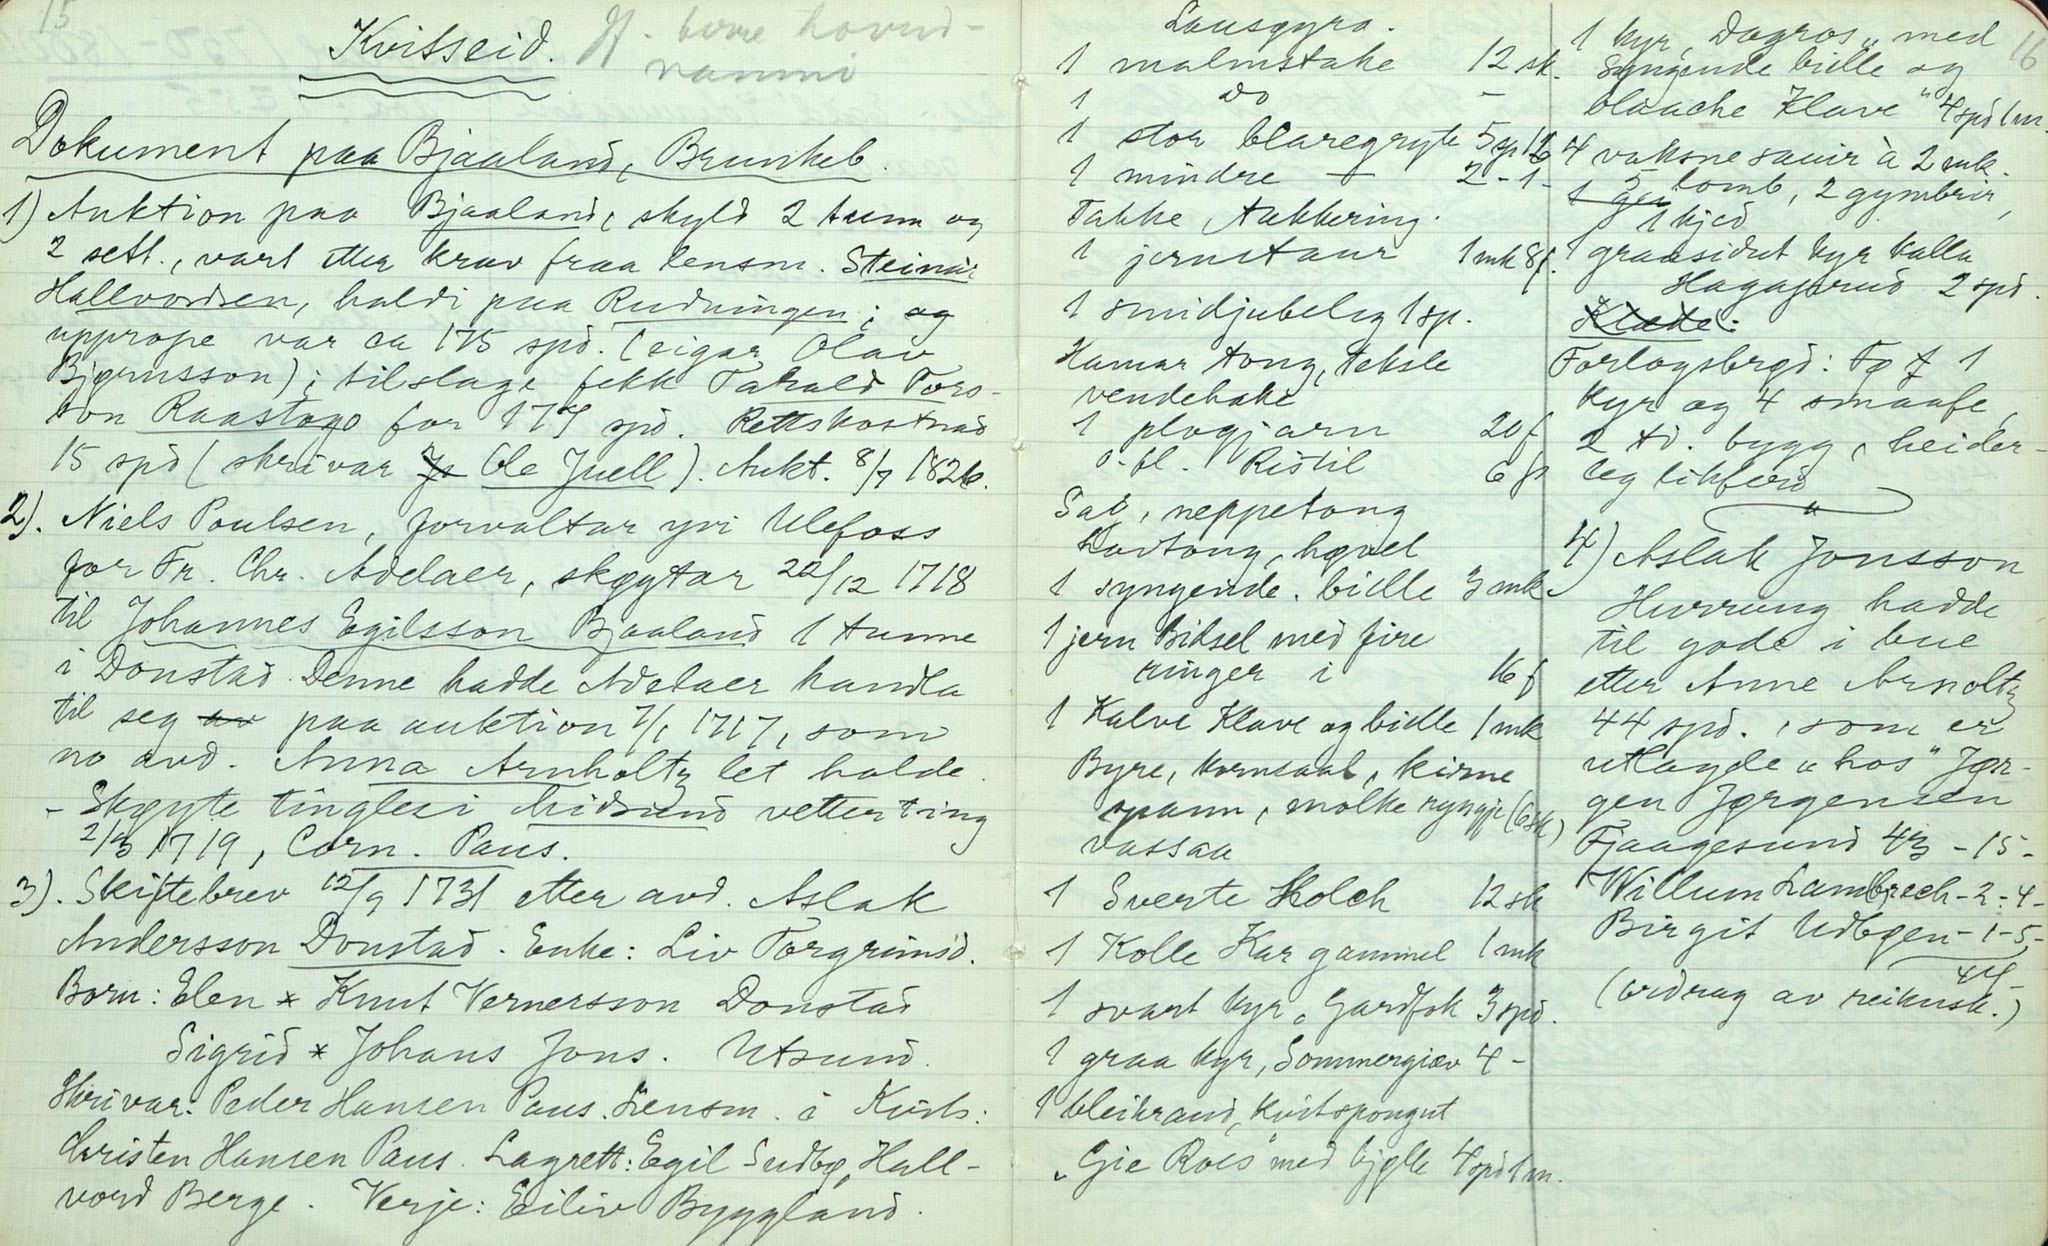 15
Kvitseid.
Dokument paa Bjaaland, Brunkeb.
1) Auktion paa Bjaaland, skyld 2 tunn og
2 sett., vart etter krav fraa lensm. Steinar
Hallvordsen, haldi paa Rudningen; og
upprope var ca 175 spd. (eigar Olav
Bjørnsson); tilslage fekk Tarald Tors-
son Raastogo for 177 spd. Rettskostnad
15 spd (skrivar Ole Juell). Aukt. 8/7 1826.
2). Niels Poulsen, forvaltar yvi Ulefoss
for Fr. Chr. Adelaer, skøytar 22/12 1718
til Johannes Egilsson Bjaaland 1 tunne
i Donstad. Denne hadde Adelaer handla
til seg av paa auktion 7/1 1717, som
no avd. Anna Arnholtz let halde.
- Skøyte tinglesi Midsund vetterting
2/3 1719, Corn. Paus.
3). Skiftebrev 12/9 1731 etter avd. Aslak
Andersson Donstad. Enke: Liv Torgrimsd.
Born: Elen x Knut Vernersson Donstad
Sigrid x Johans Jons. Utsund.
Skrivar: Peder Hansen Paus. Lensm. i Kvits:
Christen Hansen Paus. Lagrett: Egil Sudbø, Hall-
vord Berge. Verje: Eiliv Byggland.
Lausøyra.
1 malmstake 12 sk.
1 do -
1 stor blaregryte
1 mindre — 2 - 1 -
Takke, takkering.
1 jernstaur 1 mk 8 f.
1 smidjubelg 1 sp.
Hamar tong, teksle
vendehake
1 plogjarn 20 f
o. fl. Ristil 6 f
Sag, neppetong
høvel
1 syngende bidlle 3 mk.
1 jern Bidsel med fire
ringer i 16 f
1 Kalve Klave og bidlle 1 mk
Byre, kornsaal, kidne
spann, molke ryngje (6 sk)
vassaa
1 Sverte Holck 12 sk
1 Kolle Kar gammel 1 mk
1 svart kyr, Gardfok 3 spd.
1 graa kyr, Sommergiæv 4 -
1 bleikrand, kvitspongut
„Gie Roes" med bjølle 4 spd 1 m.
16
1 kyr „Dagros" med
syngende bidlle og
blaache Klave" 4 spd 1 m.
4 vaksne sauir à 2 mk.
5 lomb, 2 gymbrir,
1 kjed
1 graasidut kyr kalla
Hagaprud 2 spd.
Klæde:
Forlogsbrød: Fø 1
kyr og 4 smaafe,
2 td. bygg, heider-
leg likferd
4) Aslak Jonsson
Hvrrung hadde
til gode i bue
etter Anne Arnoltz
44 spd., som er
utlagde „hos" Jør-
gen Jørgensen
Fjaagesund 43 - 15 -
Willum Lambrech - 2 - 4 -
Birgit Udbøen - 1 - 5,
44 -
(utdrag av reiknsk.)